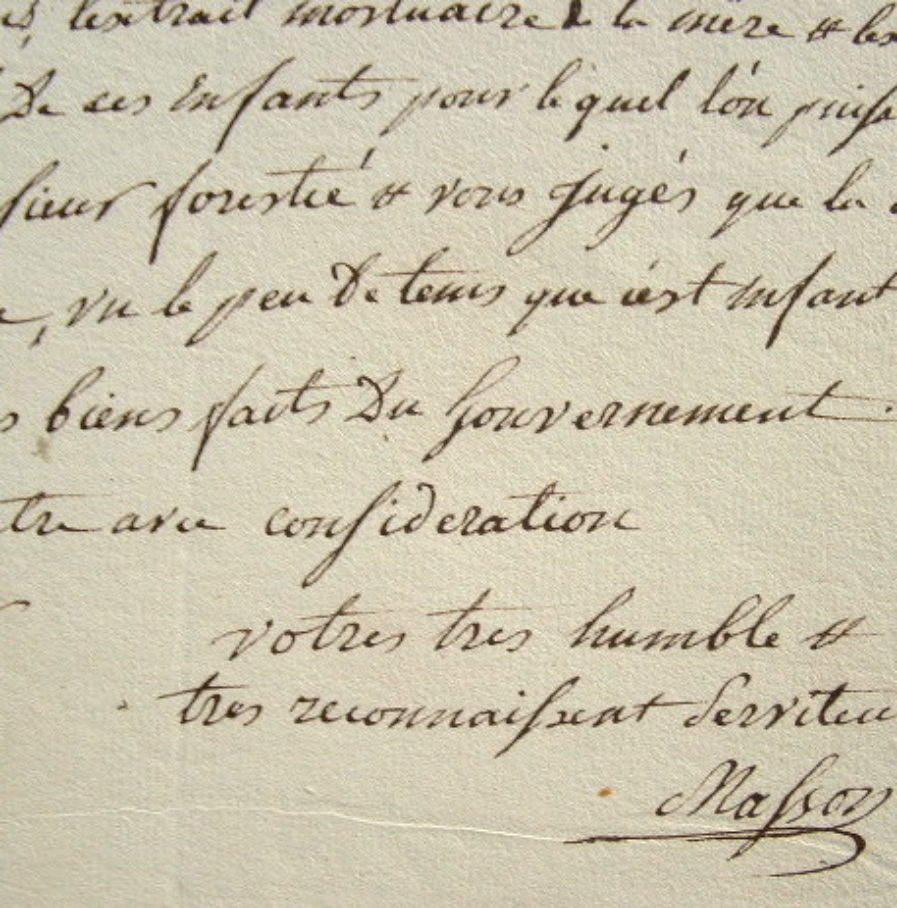 lextrait mortuaire de la mère & les
De ces Enfants pour le quel lón puisse
sieur forestié & vous jugés que la
, vu le peu De tems que cést Enfant
s biens faits Du Gouvernement.
tre avec consideration
votres tres humble &
tres reconnaissent Serviteu
Masson